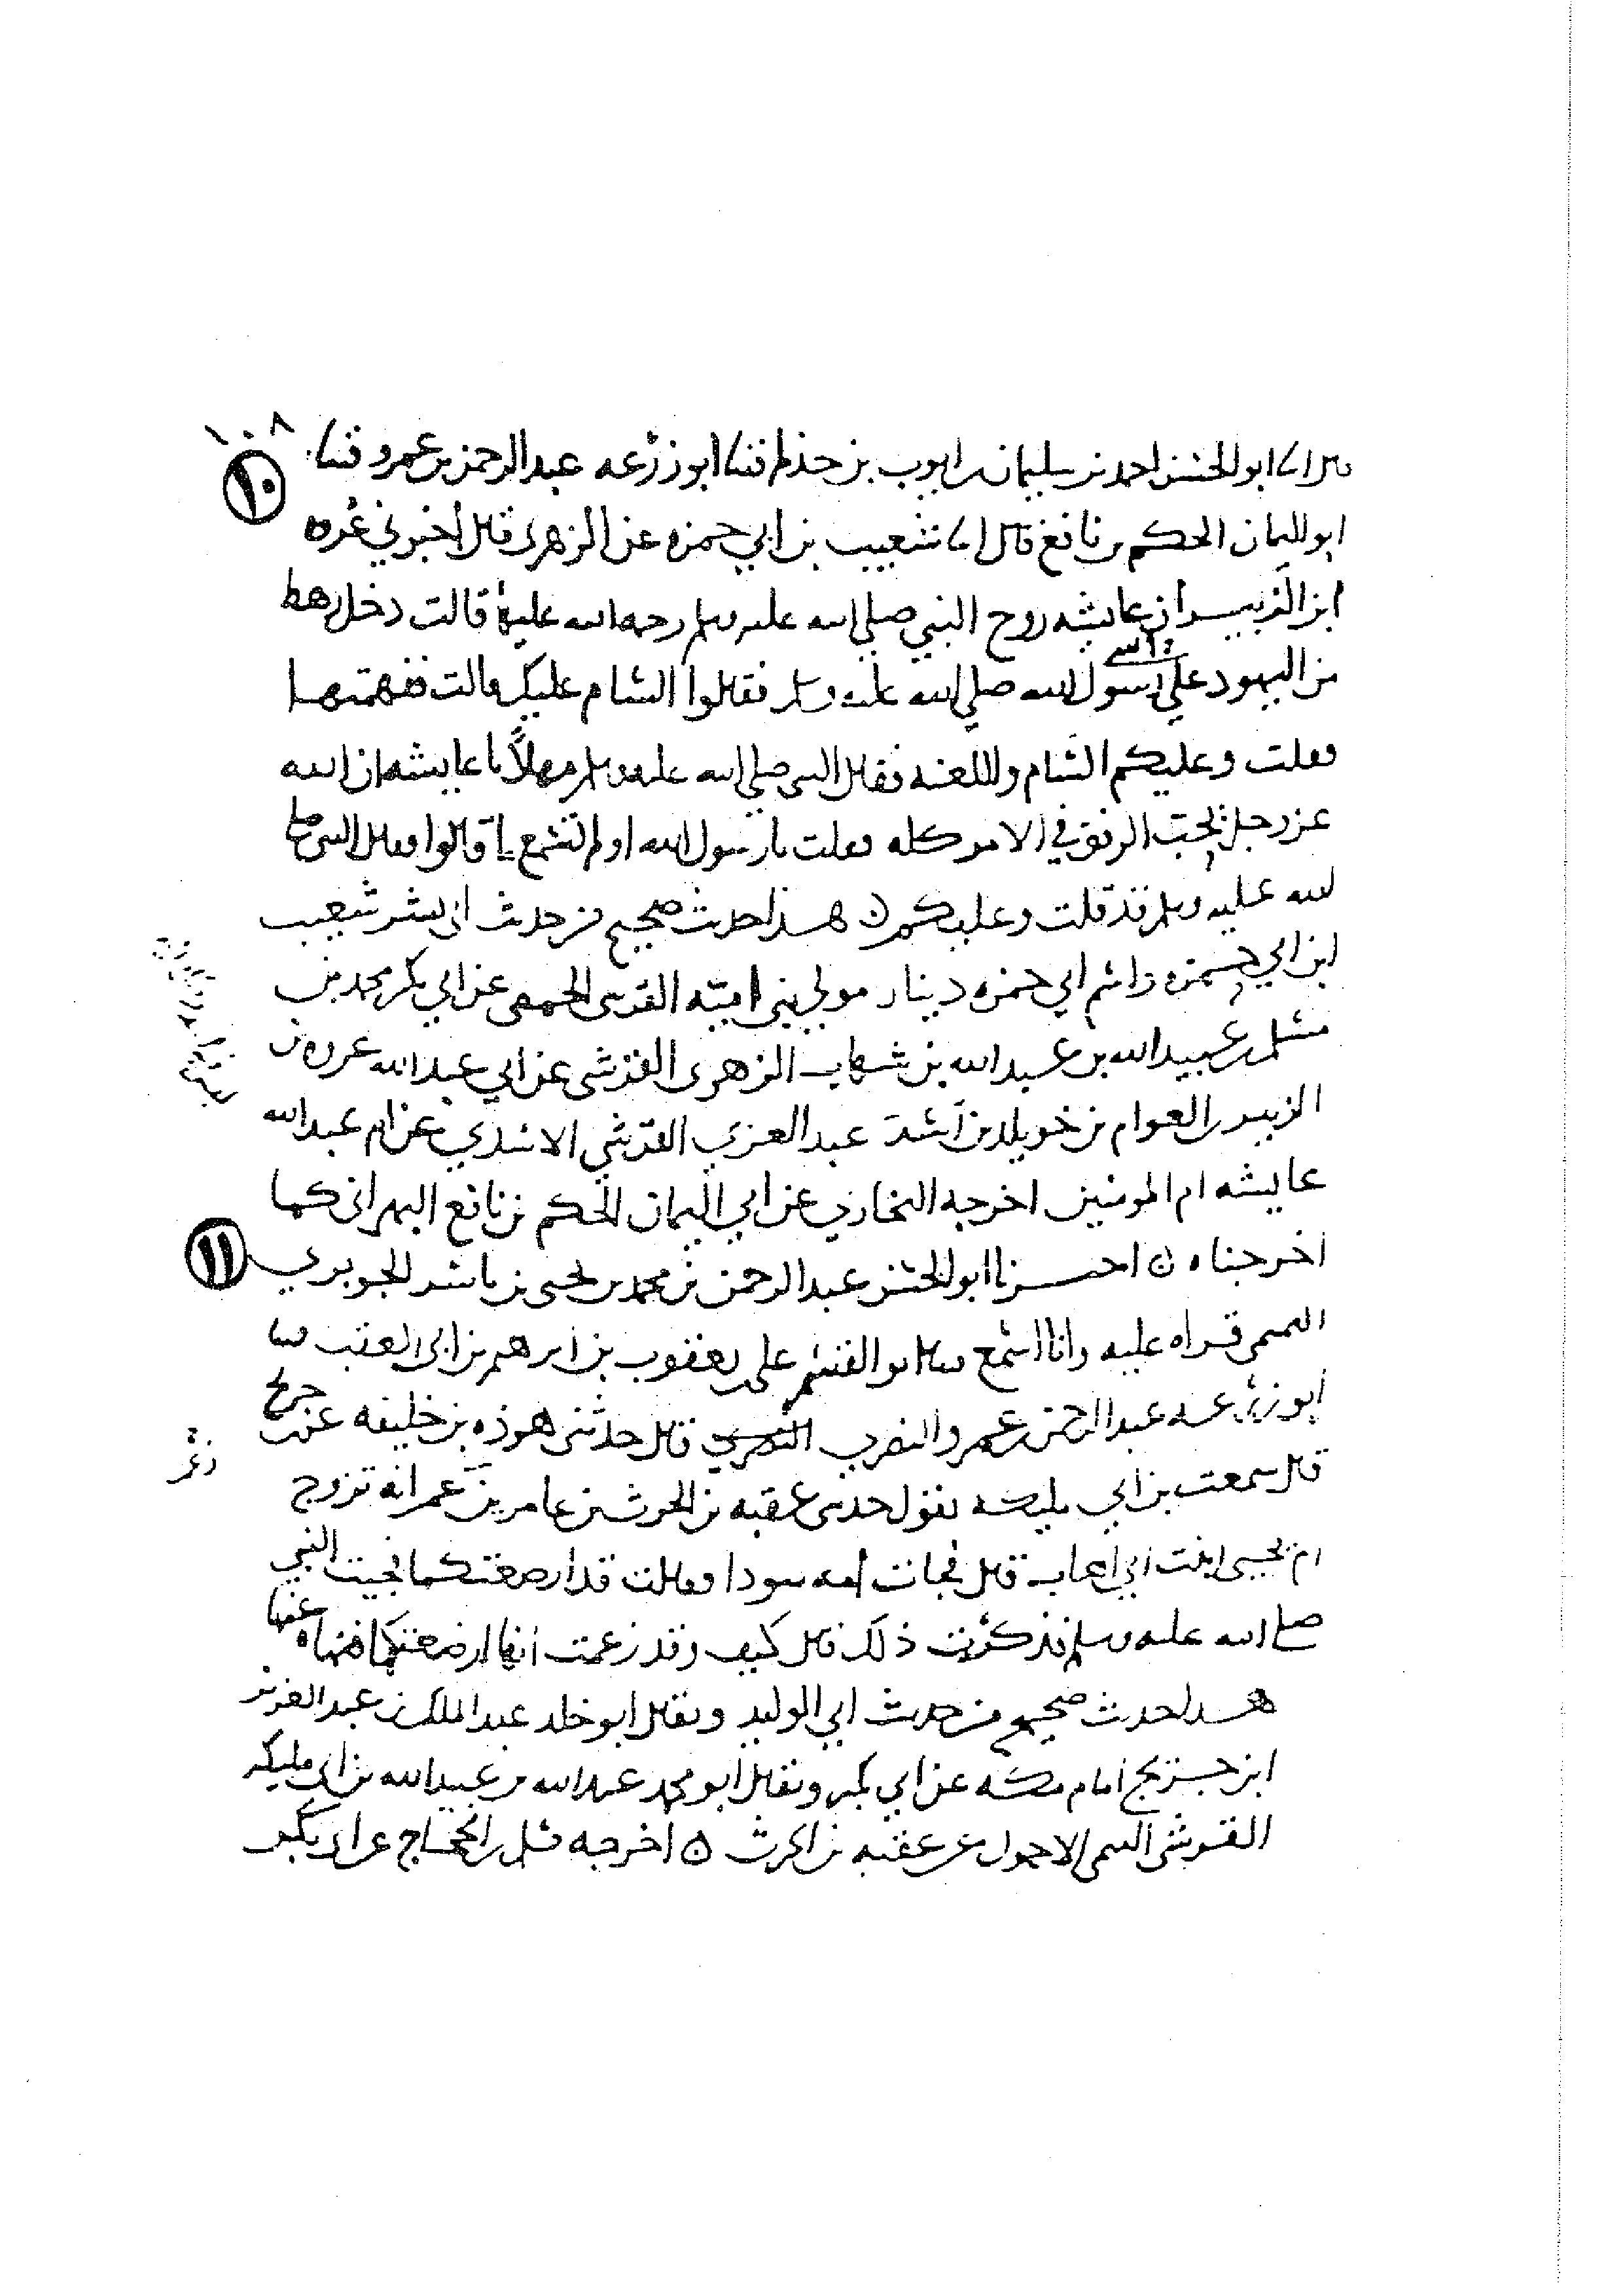 ١٠٨
قال انا ابو الحسن احمد بن سليمان بن ايوب بن حذلم قثنا ابو زرعه عبد الرحمن بن عمرو قثنا
١٠
ابو اليمان الحكم بن نافع قال انا شعيب بن ابي حمزه عن الزهرى قال اخبرني عروه
ابن الزبير ان عايشه زوج النبي صلي الله عليه وسلم رحمه الله عليها قالت دخل رهط
من اليهود علي رسول الله صلي الله عليه وسلم فقالوا السام عليكم قالت ففهمتها
فقلت وعليكم السام واللعنه فقال النبي صلي الله عليه وسلم مهلاً يا عايشه ان الله
عز وجل يحب الرفق في الامر كله فقلت يا رسول الله اولم تسمع ما قالوا فقال النبي صلى
الله عليه وسلم قد قلت وعليكم ه هذا حديث صحيح من حديث ابى بشر شعيب
ابن ابي حمزه واسم ابي حمزه دينار مولي بني اميه القرشى الحمصى عن ابي بكر محمد بن
مسلم بن عبيد الله بن عبد الله بن شهاب الزهرى القرشى عن ابي عبد الله عروه بن
الزبير بن العوام بن خويلد بن اسد عبد العزي القرشي الاسدي عن ام عبد الله
عايشه ام المومنين اخرجه البخاري عن ابي اليمان الحكم بن نافع البهرانى كما
اخرجناه ه اخبرنا ابو الحسن عبد الرحمن بن محمد بن يحيى بن ياسر الجوبري
١١
التميمى قراه عليه وانا اسمع قثنا ابو القسم على بن يعقوب بن ابرهيم بن ابى العقب قثنا
ابو زرعه عبد الرحمن بن عمرو النصرى قال حدثنى هوذه بن خليفه عن بن جريج
قال سمعت بن ابي مليكه يقول حدثنى عقبه بن الحرث بن عامر بن عمر انه تزوج
ام يحيى ابنت ابي اهاب قال فجات امه سودا فقالت قد ارضعتكما فجيت النبي
صلى الله عليه وسلم فذكرت ذلك قال كيف وقد زعمت انها ارضعتكما فنهاه عنها
هذا حديث صحيح من حديث ابي الوليد ويقال ابو خلد عبد الملك بن عبد العزيز
ابن جريج امام مكه عن ابي بكر ويقال ابو محمد عبد الله بن عبيد الله بن ابي مليكه
القرشى التيمى الاحول عن عقبه بن الحرث ه اخرجه مسلم بن الحجاج عن ابى بكر